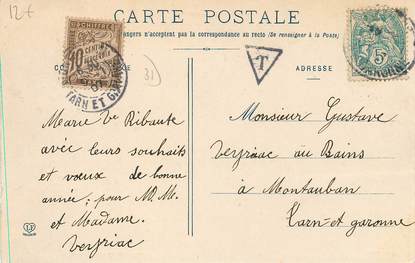 12€
CARTE POSTALE
angers n'acceptent pas la correspondance au recto (Se renseigner à la Poste)
ADRESSE
T
31
CHIFFRE
10 CENTIMES
TARN ET GARONNE
5
Marie Vve Ribaute
avec leurs souhaits
et vœux de bonne
année; pour M. M.
et Madame.
Veyriac
Monsieur Gustave
Veyriac au Bains
à Montauban
Tarn-et-garonne